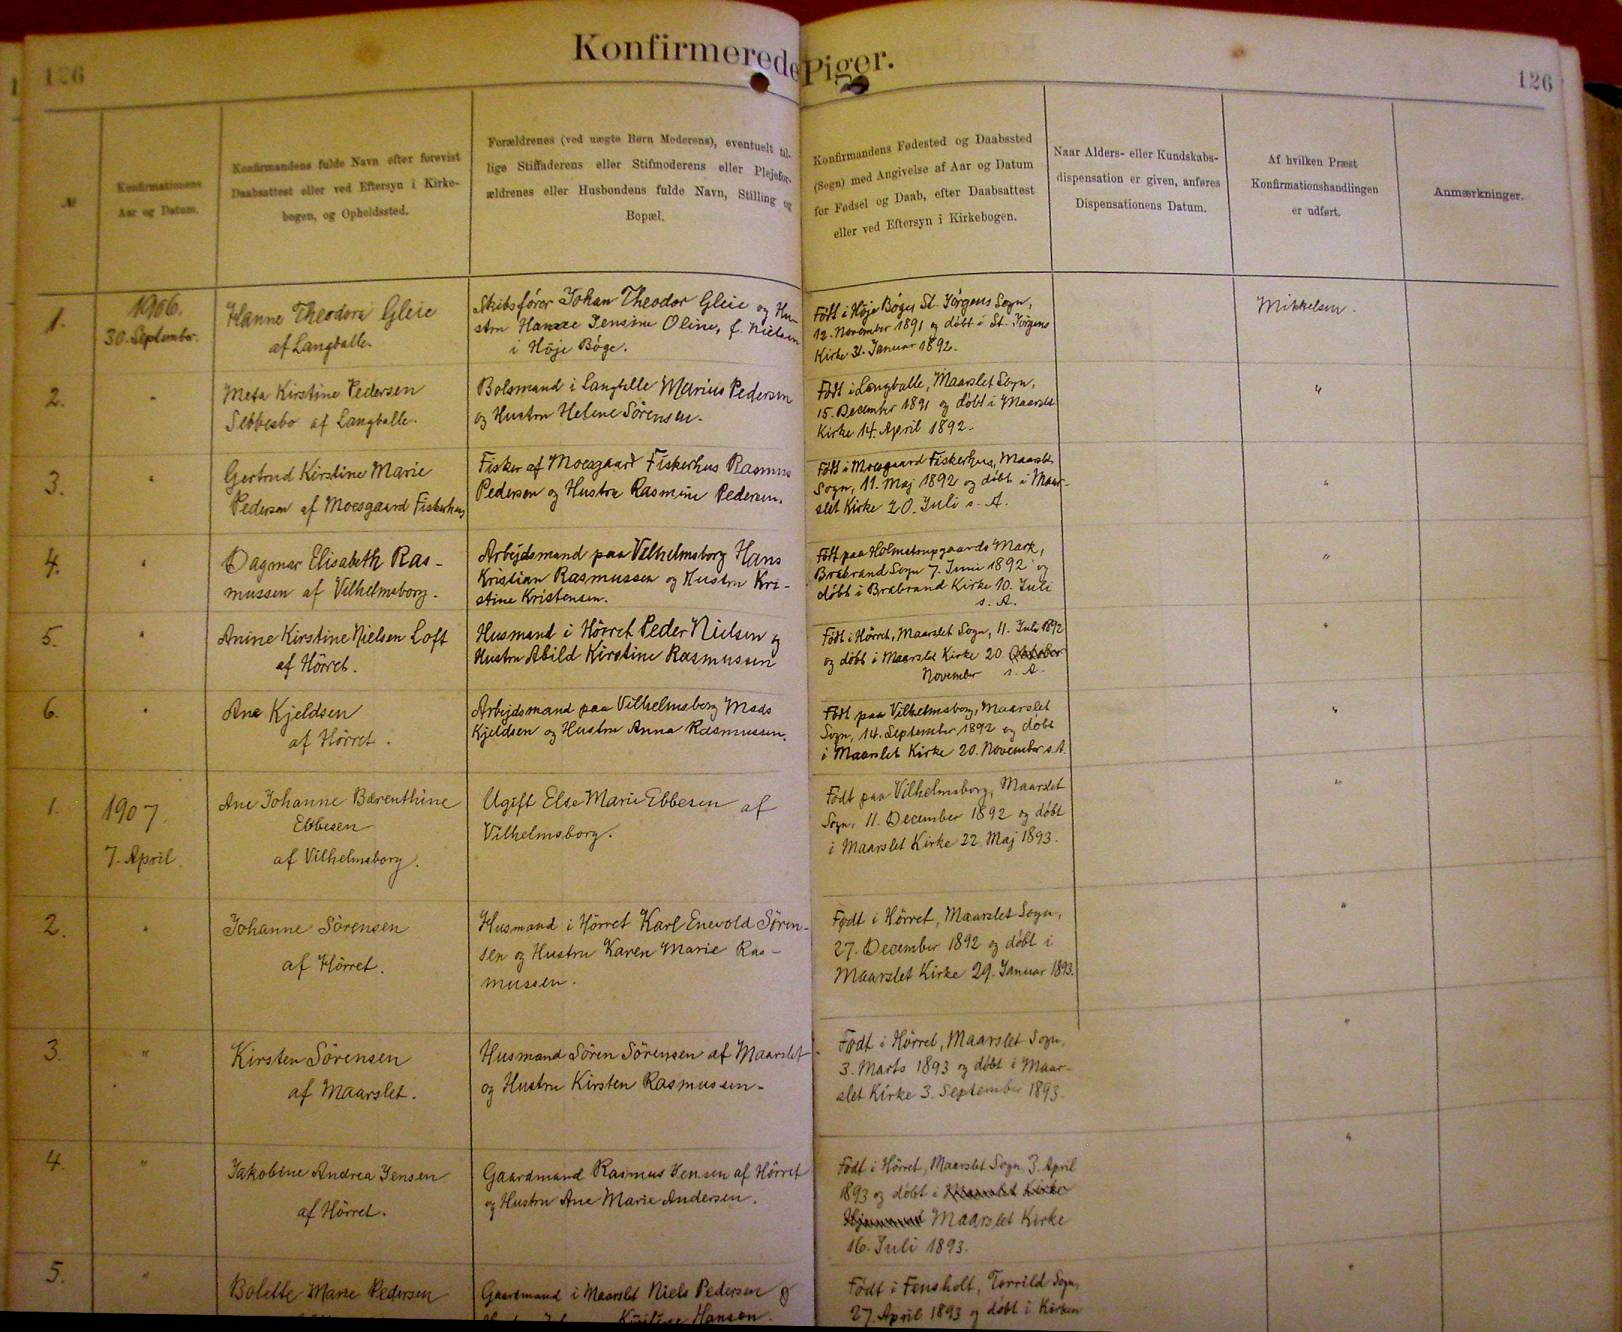 126
Konfirmerede Piger.
126
№
Konfirmationens
Aar og Datum.
Konfirmandens fulde Navn efter forevist
Daabsattest eller ved Eftersyn i Kirke-
bogen, og Opholdssted.
Forældrenes (ved uægte Børn Moderens), eventuelt til-
lige Stiffaderens eller Stifmoderens eller Plejefor-
ældrenes eller Husbondens fulde Navn, Stilling og
Bopæl.
Konfirmandens Fødested og Daabssted
(Sogn) med Angivelse af Aar og Datum
for Fødsel og Daab, efter Daabsattest
eller ved Eftersyn i Kirkebogen.
Naar Alders- eller Kundskabs-
dispensation er given, anføres
Dispensationens Datum.
Af hvilken Præst
Konfirmationshandlingen
er udført.
Anmærkninger.
1.
1906.
30. September.
Hanne Theodora Gleie
af Langballe.
Skibsfører Johan Theodor Gleie og Hu-
stru Hanne Jensine Oline, f. Nielsen
i Höje Böge.
Født i Höje Böge, St. Jörgens Sogn,
12. November 1891 og döbt i St. Jörgens
Kirke 31. Januar 1892.
Mikkelsen.
2.
"
Meta Kirstine Pedersen
Sebbesbo af Langballe.
Bolsmand i Langballe Marius Pedersen
og Hustru Helene Sörensen.
Født i Langballe, Maarslet Sogn,
15. December 1891 og döbt i Maarslet
Kirke 14. April 1892.
"
3.
"
Gertrud Kirstine Marie
Pedersen af Moesgaard Fiskerhus
Fisker af Moesgaard Fiskerhus Rasmus
Pedersen og Hustru Rasmine Pedersen.
Født i Moesgaard Fiskerhus, Maarslet
Sogn, 11. Maj 1892 og döbt i Maar-
slet Kirke 20. Juli s. A.
"
4.
"
Dagmar Elisabeth Ras-
mussen af Vilhelmsborg.
Arbejdsmand paa Vilhelmsborg Hans
Kristian Rasmussen og Hustru Kri-
stine Kristensen.
Født paa Holmstrupgaards Mark,
Brabrand Sogn 7. Juni 1892 og
döbt i Brabrand Kirke 10. Juli
s. A.
"
5.
"
Anine Kirstine Nielsen Loft
af Hörret.
Husmand i Hörret Peder Nielsen og
Hustru Abild Kirstine Rasmussen
Født i Hörret, Maarslet Sogn, 11. Juli 1892
og döbt i Maarslet Kirke 20. Oktober
November s. A.
"
6.
"
Ane Kjeldsen
af Hörret.
Arbejdsmand paa Vilhelmsborg Mads
Kjeldsen og Hustru Anna Rasmussen.
Født paa Vilhelmsborg, Maarslet
Sogn, 14. September 1892 og döbt
i Maarslet Kirke 20. November s. A.
"
1.
1907.
7. April.
Ane Johanne Bærenthine
Ebbesen
af Vilhelmsborg.
Ugift Else Marie Ebbesen af
Vilhelmsborg.
Født paa Vilhelmsborg, Maarslet
Sogn, 11. December 1892 og döbt
i Maarslet Kirke 22. Maj 1893.
"
2.
"
Johanne Sörensen
af Hörret.
Husmand i Hörret Karl Enevold Sören-
sen og Hustru Karen Marie Ras-
mussen.
Født i Hörret, Maarslet Sogn,
27. December 1892 og döbt i
Maarslet Kirke 29. Januar 1893.
"
3.
"
Kirsten Sörensen
af Maarslet.
Husmand Sören Sörensen af Maarslet
og Hustru Kirsten Rasmussen.
Født i Hörret, Maarslet Sogn,
3. Marts 1893 og döbt i Maar-
slet Kirke 3. September 1893.
"
4.
"
Jakobine Andrea Jensen
af Hörret.
Gaardmand Rasmus Jensen af Hörret
og Hustru Ane Marie Andersen.
Født i Hörret, Maarslet Sogn, 3. April
1893 og döbt i Maarslet Kirke
Maarslet Kirke
16. Juli 1893.
"
5.
"
Bolette Marie Pedersen
Gaardmand i Maarslet Niels Pedersen og
Kirstine Hansen.
Født i Fensholt, Torrild Sogn,
27. April 1893 og döbt i Kirken
"